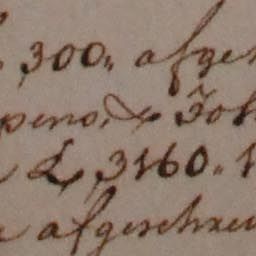 300„ afge
peno, & Joh
£ 3160„ 1
afgeschreu